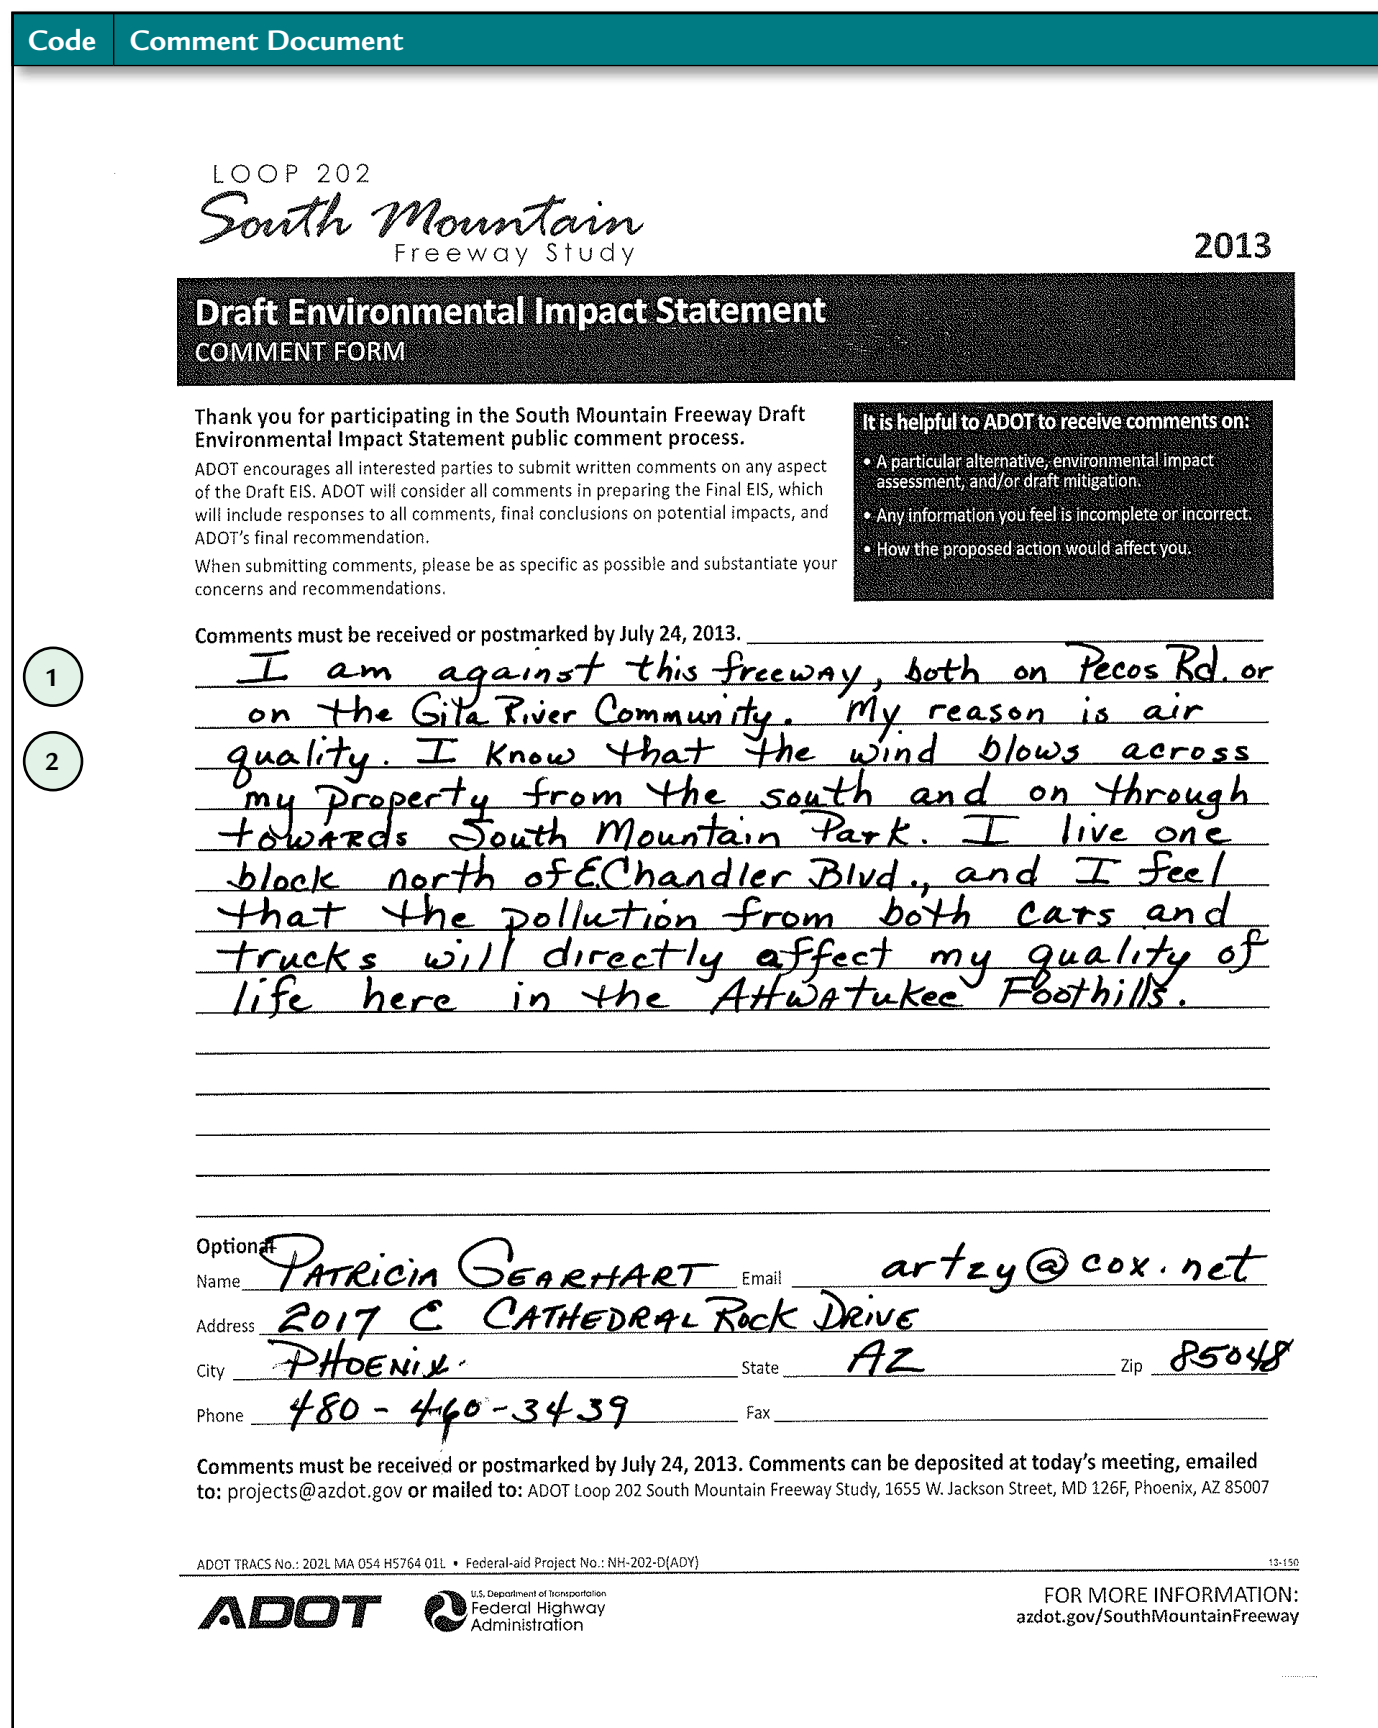 Code Comment Document
LOOP 202
South Mountain
Freeway Study
2013
Draft Environmental Impact Statement
COMMENT FORM
Thank you for participating in the South Mountain Freeway Draft
Environmental Impact Statement public comment process.
ADOT encourages all interested parties to submit written comments on any aspect
of the Draft EIS. ADOT will consider all comments in preparing the Final EIS, which
will include responses to all comments, final conclusions on potential impacts, and
ADOT's final recommendation.
When submitting comments, please be as specific as possible and substantiate your
concerns and recommendations.
It is helpful to ADOT to receive comments on:
• A particular alternative, environmental impact
assessment, and/or draft mitigation.
• Any information you feel is incomplete or incorrect.
• How the proposed action would affect you.
Comments must be received or postmarked by July 24, 2013.
1
I am against this freeway, both on Pecos Rd. or
on the Gila River Community. My reason is air
2
quality. I know that the wind blows across
my property from the south and on through
towards South Mountain Park. I live one
block north of E. Chandler Blvd., and I feel
that the pollution from both cars and
trucks will directly affect my quality of
life here in the Ahwatukee Foothills.
Optional
Name PATRICIA GEARHART Email artzy@cox.net
Address 2017 E CATHEDRAL ROCK DRIVE
City PHOENIX State AZ Zip 85048
Phone 480-460-3439 Fax
Comments must be received or postmarked by July 24, 2013. Comments can be deposited at today's meeting, emailed
to: projects@azdot.gov or mailed to: ADOT Loop 202 South Mountain Freeway Study, 1655 W. Jackson Street, MD 126F, Phoenix, AZ 85007
ADOT TRACS No.: 202L MA 054 H5764 01L • Federal-aid Project No.: NH-202-D(ADY)
13-150
ADOT
U.S. Department of Transportation
Federal Highway
Administration
FOR MORE INFORMATION:
azdot.gov/SouthMountainFreeway